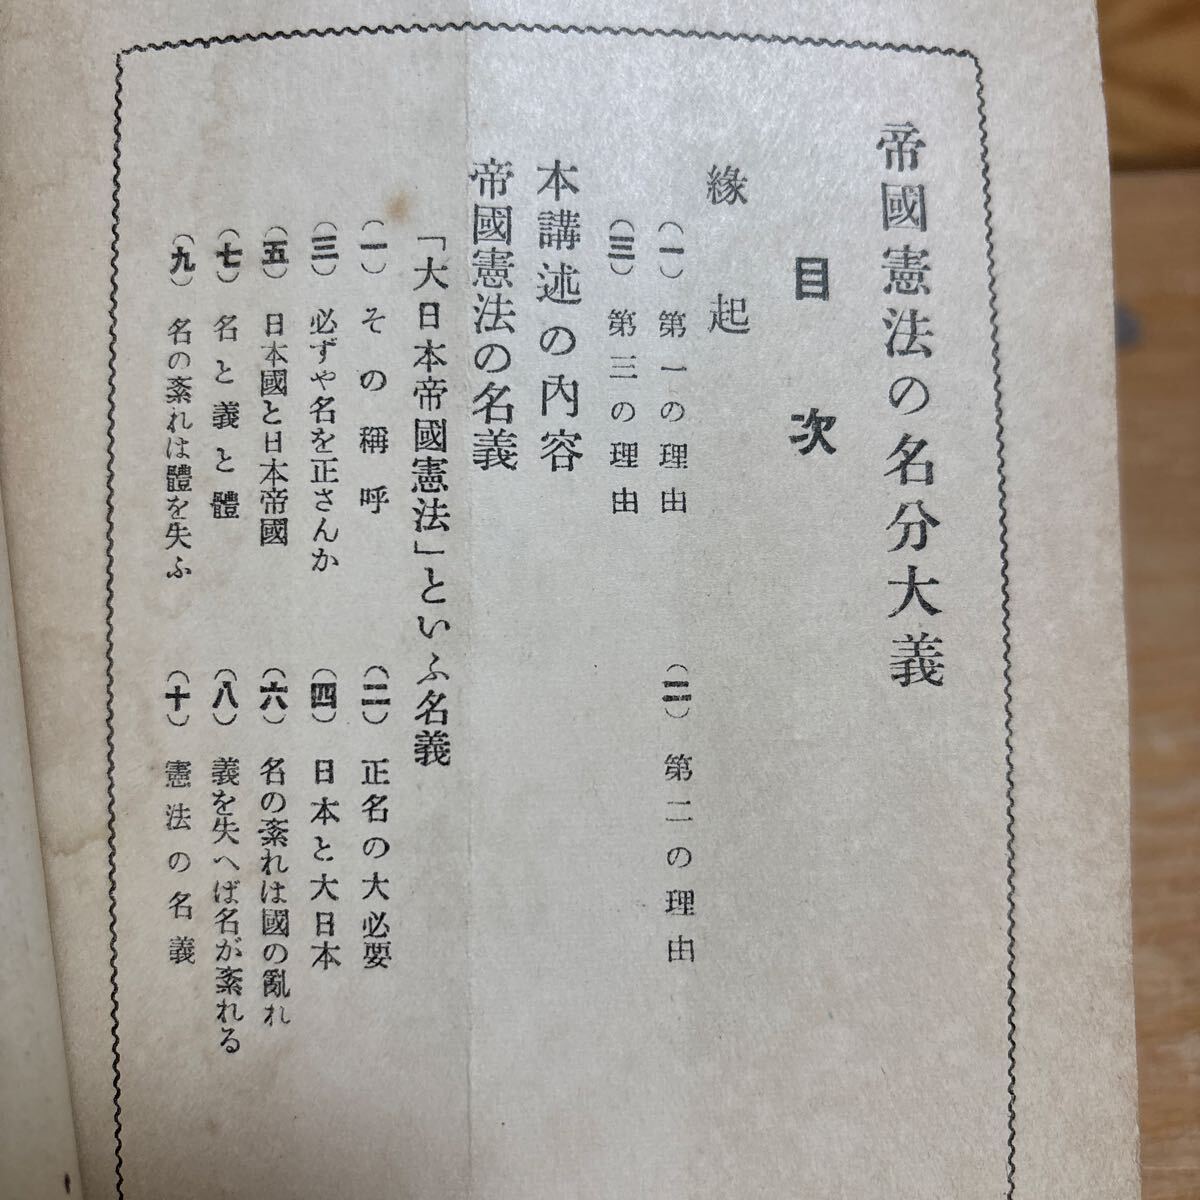 帝國憲法の名分大義
目次
緣起
(一) 第一の理由
(二) 第二の理由
(三) 第三の理由
本講述の內容
帝國憲法の名義
「大日本帝國憲法」といふ名義
(一) その稱呼
(二) 正名の大必要
(三) 必ずや名を正さんか
(四) 日本と大日本
(五) 日本國と日本帝國
(六) 名の紊れは國の亂れ
(七) 名と義と體
(八) 義を失へば名が紊れる
(九) 名の紊れは體を失ふ
(十) 憲法の名義